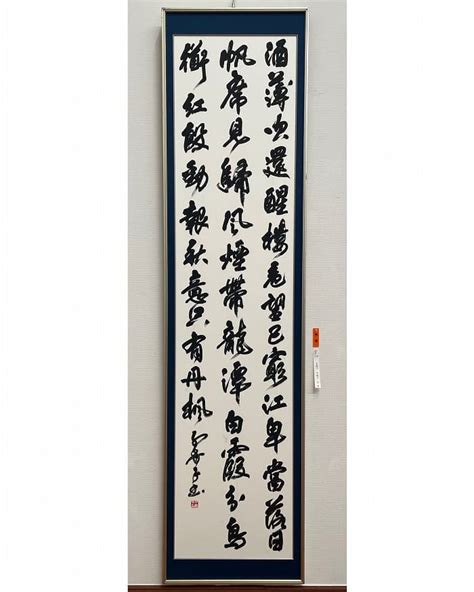 酒薄吹還醒樓危望已窮江皋當落日
帆席見歸風煙帶龍潭白霞分鳥
衟紅殷勤報秋意只有丹楓